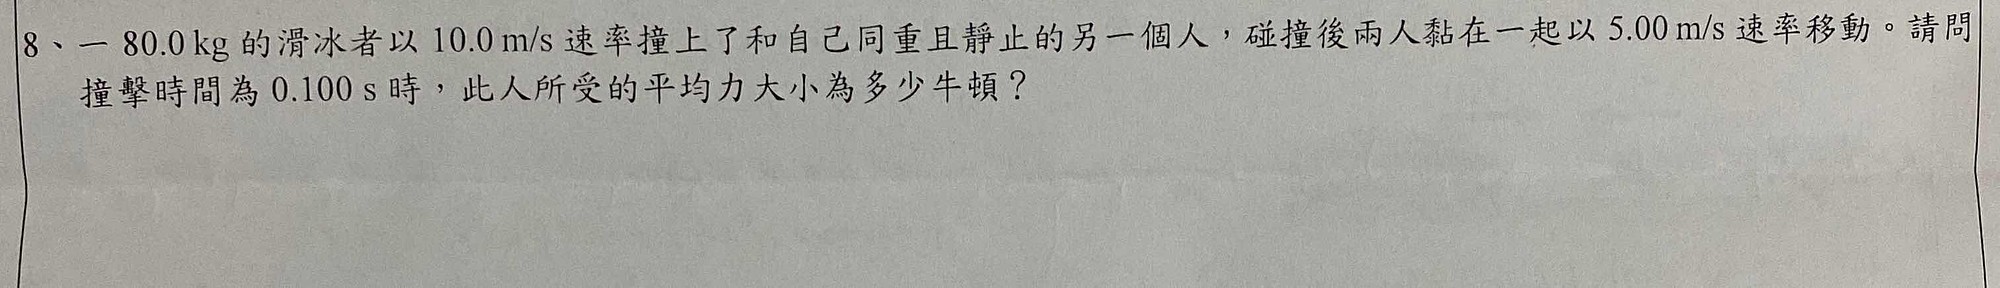 8、一 80.0 kg 的滑冰者以 10.0 m/s 速率撞上了和自己同重且靜止的另一個人，碰撞後兩人黏在一起以 5.00 m/s 速率移動。請問
撞擊時間為 0.100 s 時，此人所受的平均力大小為多少牛頓？